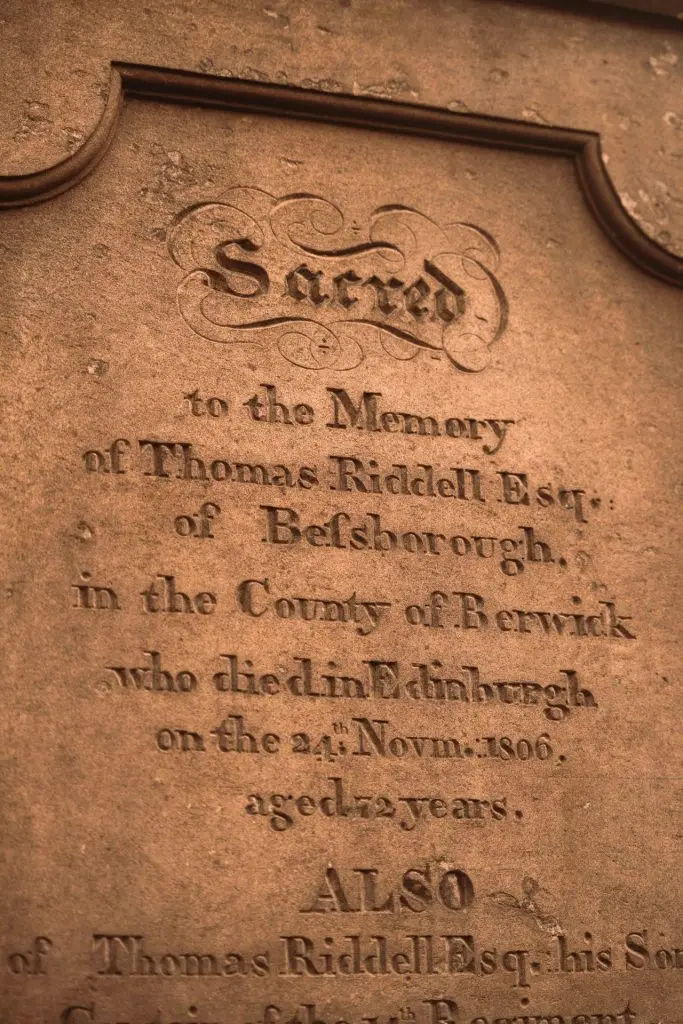 Sacred
to the Memory
of Thomas Riddell Esq.
of Beſsborough,
in the County of Berwick
who died in Edinburgh
on the 24th Novm. 1806.
aged 72 years.
ALSO
of Thomas Riddell Esq. his Son
Captain of the Regiment